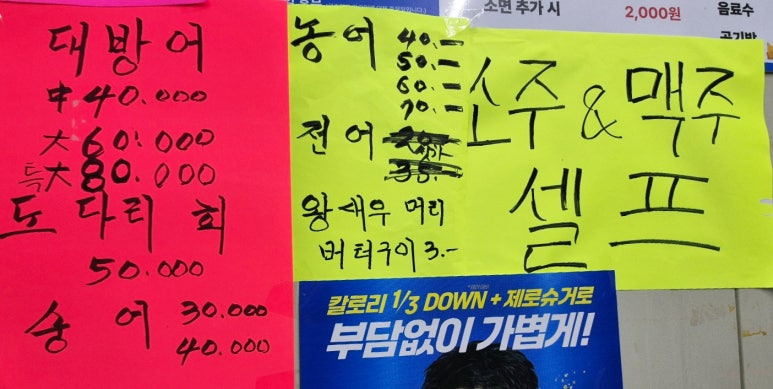 대방어
中 40.000
大 60.000
특大 80.000
도다리회
50.000
송어 30.000
40.000
농어 40.-
50.-
60.-
70.-
전어
왕새우 머리
버터구이 3.-
소주 & 맥주
셀프
소면 추가 시 2,000원
음료수
공기밥
칼로리 1/3 DOWN + 제로슈거로
부담없이 가볍게!